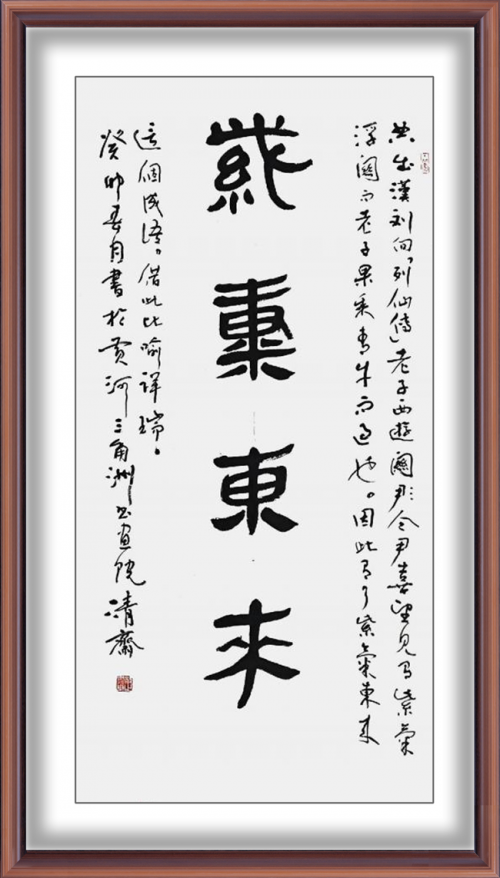 典出漢刘向「列仙傳」老子西遊關令尹喜望見有紫氣
浮關而老子果乘青牛而過也。因此有了紫氣東来
紫氣東来
這個成語。借此比喻祥瑞。
癸卯春月書於黄河三角洲书画院清齋